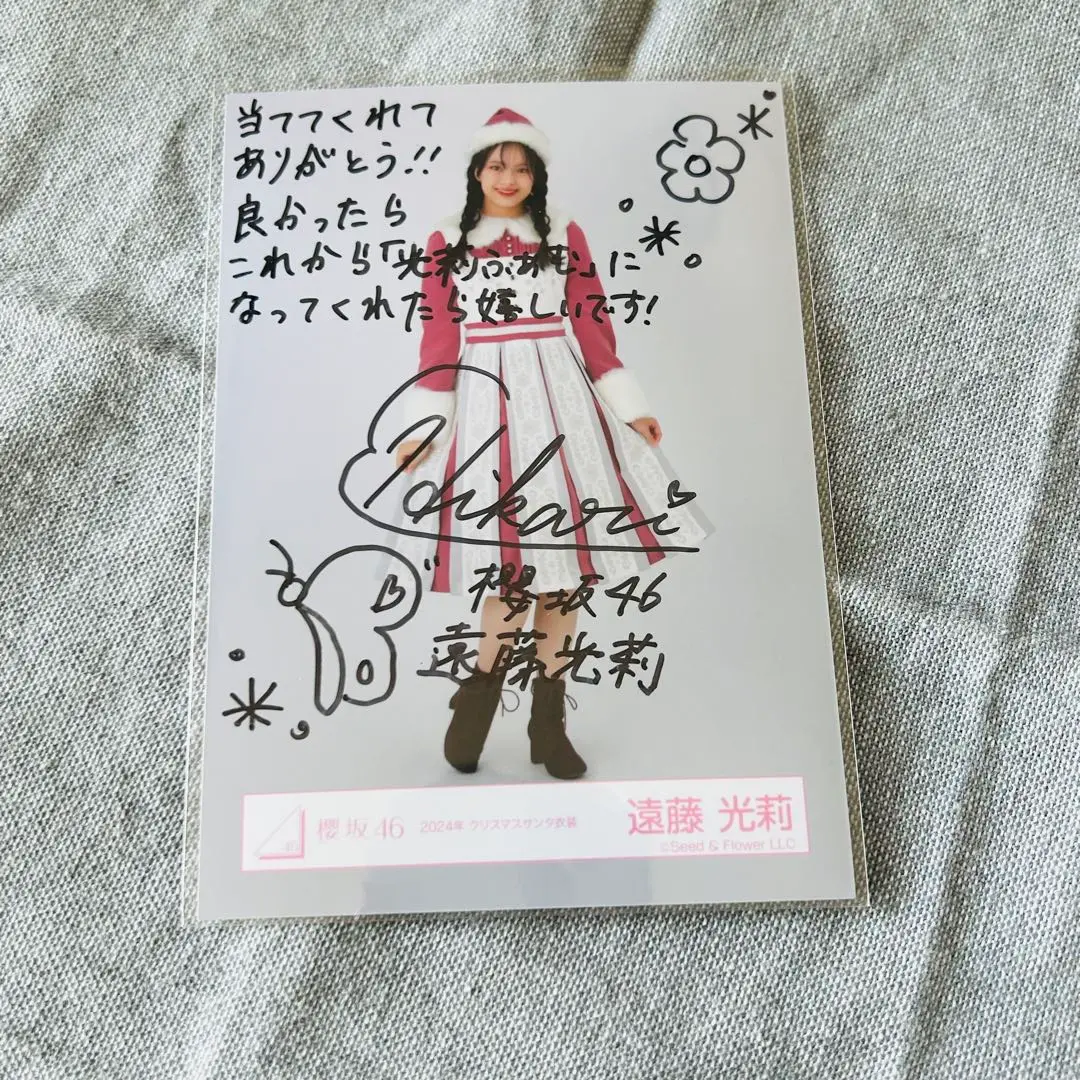 当ててくれて
ありがとう!!
良かったら
これから「光莉ふぁむ」に
なってくれたら嬉しいです!
Hikari
櫻坂46
遠藤光莉
櫻坂46 2024年 クリスマスサンタ衣装 遠藤 光莉
©Seed & Flower LLC